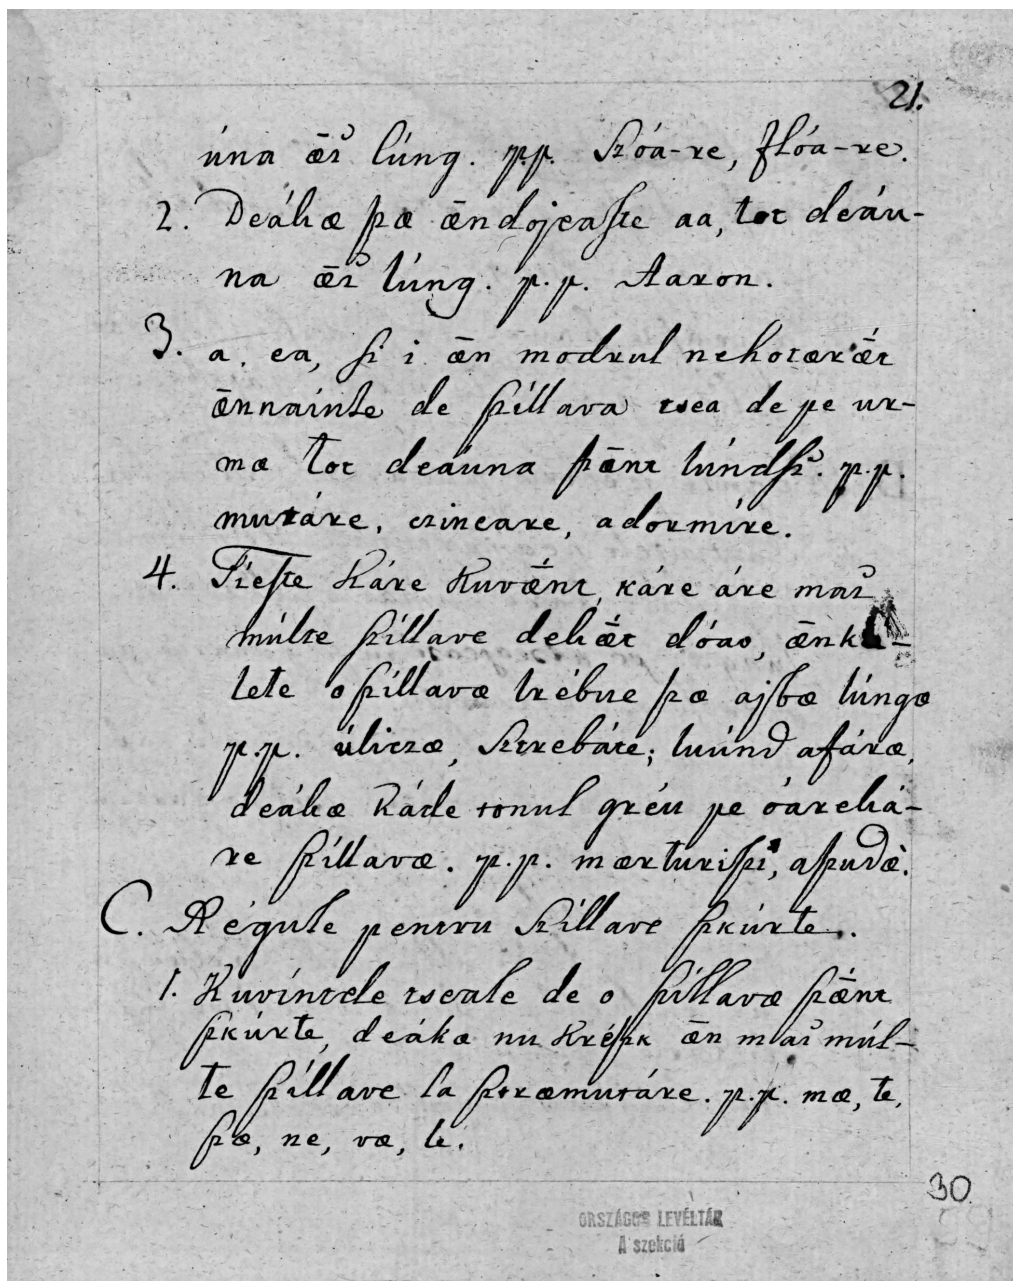 21.
úna ǣĭ lúng. p.p. Szóa-re, flóa-re.
2. Deákæ ſzæ ǣndojeaſte aa, tot deáu-
na ǣĭ lúng. p.p. Aaron.
3. a, ea, ſi i ǣn modrul nehotærǣ́t
ǣnnainte de ſzíllava tsea de pe ur-
mæ tot deáuna ſzǣnt lúndſĭ. p.p.
mutáre, czineare, adormíre.
4. Fíeſte káre Kuvǣ́nt, káre áre maĭ
múlte ſzíllave dekǣ́t dóao,
lete o ſzíllavæ trébue ſzæ ajbæ lúngæ
p.p. úlitzæ, Sztrebáte; luúnd afáræ,
deákæ káde tonul gréu pe óareká-
re ſzíllavæ. p.p. mærturiſzi, aſzudæ̀.
C. Régule pentru Szíllave ſzkúrte.
1. Kuvíntele tseale de o ſzíllavæ ſzǣ́nt
ſzkúrte, deákæ nu Kréſzk ǣn maĭ múl-
te ſzíllave la ſztræmutáre. p.p. mæ, te,
ſzæ, ne, væ, le.
30
ORSZÁGOS LEVÉLTÁR
A szekció